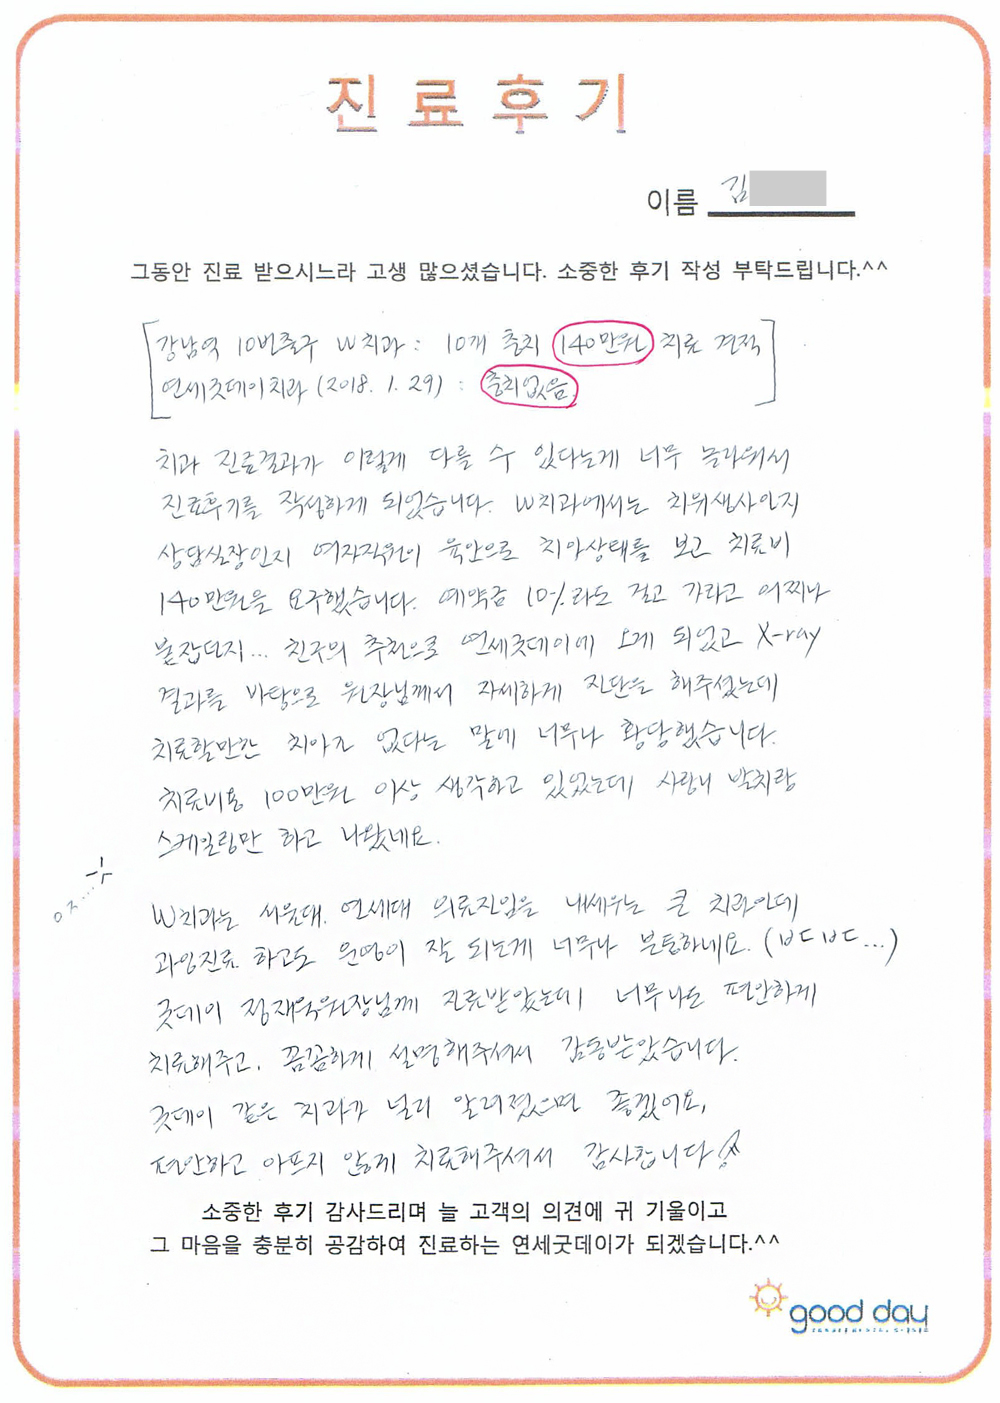 진료후기
이름 김
그동안 진료 받으시느라 고생 많으셨습니다. 소중한 후기 작성 부탁드립니다.^^
강남역 10번출구 W치과 : 10개 충치 140만원 치료 견적
연세굿데이치과 (2018. 1. 29) : 충치없음.
치과 진료결과가 이렇게 다를 수 있다는게 너무 놀라워서
진료후기를 작성하게 되었습니다. W치과에서는 치위생사인지
상담실장인지 여자직원이 육안으로 치아상태를 보고 치료비
140만원을 요구했습니다. 예약금 10%라도 걸고 가라고 어찌나
붙잡던지... 친구의 추천으로 연세굿데이에 오게 되었고 X-ray
결과를 바탕으로 원장님께서 자세하게 진단을 해주셨는데
치료할만한 치아가 없다는 말에 너무나 황당했습니다.
치료비용 100만원 이상 생각하고 있었는데 사랑니 발치랑
스케일링만 하고 나왔네요.
W치과는 서울대. 연세대 의료진임을 내세우는 큰 치과인데
과잉진료 하고도 운영이 잘 되는게 너무나 분통하네요. (ㅂㄷㅂㄷ...)
굿데이 정재욱원장님께 진료받았는데 너무나도 편안하게
치료해주고. 꼼꼼하게 설명해주셔서 감동받았습니다.
굿데이 같은 치과가 널리 알려졌으면 좋겠어요.
편안하고 아프지 않게 치료해주셔서 감사합니다
소중한 후기 감사드리며 늘 고객의 의견에 귀 기울이고
그 마음을 충분히 공감하여 진료하는 연세굿데이가 되겠습니다.^^
good day